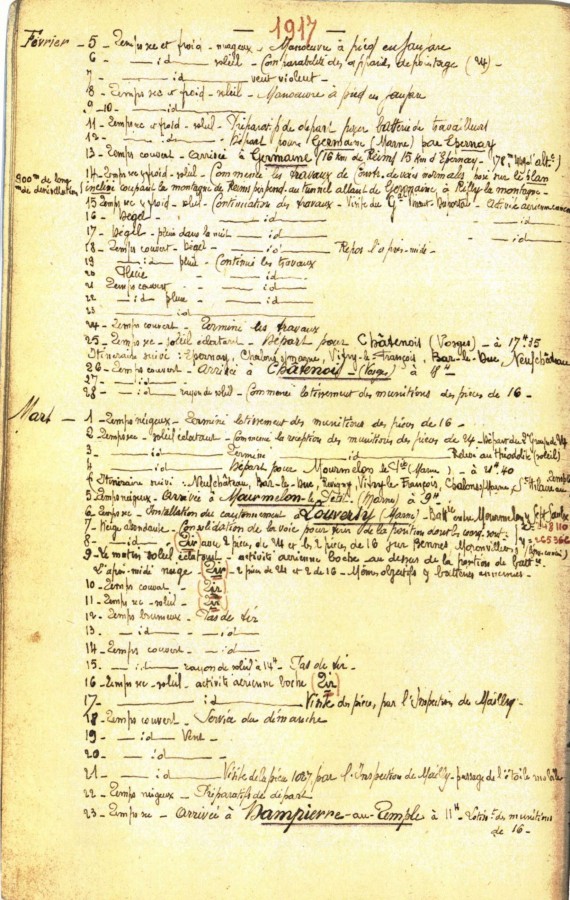 — 1917 —
Février - 5 - Temps sec et froid - nuageux - Manœuvre à pied en fanfare
6 - — id — soleil - Comparabilité des appareils de pointage (24) -
7 - — id — vent violent -
8 - Temps sec et froid - soleil - Manœuvre à pied en fanfare
9 - 10 - — id —
11 - Temps sec et froid - soleil - Préparatifs de départ pour batterie de travailleurs
12 - — id — Départ pour Germaine (Marne) par Epernay
13 - Temps couvert - arrivée à Germaine (16 Km de Reims 15 Km d'Epernay -
14 - Temps sec et froid - soleil - Commencé les travaux de voie normale posée sur le plan
900m de long
m de dénivellation
incliné coupant la montagne de Reims perpend. au tunnel allant de Germaine à Rilly la montagne -
15 - Temps sec et froid - soleil - Continuation des travaux - Visite du Gal
16 - Dégel - — id —
17 - Dégel - pluie dans la nuit — id — — id —
18 - Temps couvert - Dégel - — id — Repos l'après-midi -
19 - — id — pluie - Continué les travaux
20 - Pluie - — id —
21 - Temps couvert - — id —
22 - — id — pluie - — id —
23 - — id —
24 - Temps couvert - Terminé les travaux
25 - Temps sec - soleil éclatant - Départ pour Châtenois (Vosges) - à 17H35
Itinéraire suivi : Epernay, Châlons s/marne, Vitry-le-François, Bar-le-Duc, Neufchâteau
26 - Temps couvert - Arrivée à Châtenois (Vosges) à
27 - — id —
28 - — id — rayon de soleil - Commencé le tirement des munitions des pièces de 16 -
Mars - 1 - Temps neigeux - Terminé le tirement des munitions des pièces de 16 -
2 - Temps sec - soleil éclatant - Commencé la réception des munitions des pièces de 24 - Départ du 2e Groupe de 24
3 - — id — Terminé — id — au théodolite (soleil)
4 - — id — Départ pour Mourmelon le Petit (Marne) - à 40
Itinéraire suivi : Neufchâteau, Bar-le-Duc, Revigny, Vitry-le-François, Châlons/Marne, (St Hilaire au Temple
5 - Temps neigeux - Arrivée à Mourmelon-le-Petit (Marne) à 9H
6 - Temps sec - Installation du cantonnement à Louvercy (Marne) - Batie entre Mourmelon
7 - Neige abondante - Consolidation de la voie pour tirer de la position dont les coord. sont :
8 - — id — Tir avec 2 pièces de 24 et les 2 pièces de 16 sur Bennes Moronvilliers
9 - Le matin soleil éclatant - activité aérienne boche au dessus de la position de batt.
L'après-midi neige Tir - 2 pièces de 24 et 2 de 16 - Mêmes objectifs y batteries ennemies -
10 - Temps couvert - Tir
11 - Temps sec - soleil - Tir
12 - Temps brumeux - Pas de tir
13 - — id — — id —
14 - Temps couvert - — id —
15 - — id — rayon de soleil à 14H - Pas de tir -
16 - Temps sec - soleil - activité aérienne boche (Tir)
17 - — id — Visite des pièces, par l'Inspection de Mailly -
18 - Temps couvert - Service du dimanche
19 - — id — Vent -
20 - — id —
21 - — id — Visite de la pièce 1027 par l'Inspection de Mailly - passage de l'étoile mobile
22 - Temps neigeux - Préparatifs de départ -
23 - Temps sec - Arrivée à Dampierre-au-Temple à 11H - des munitions
de 16 -